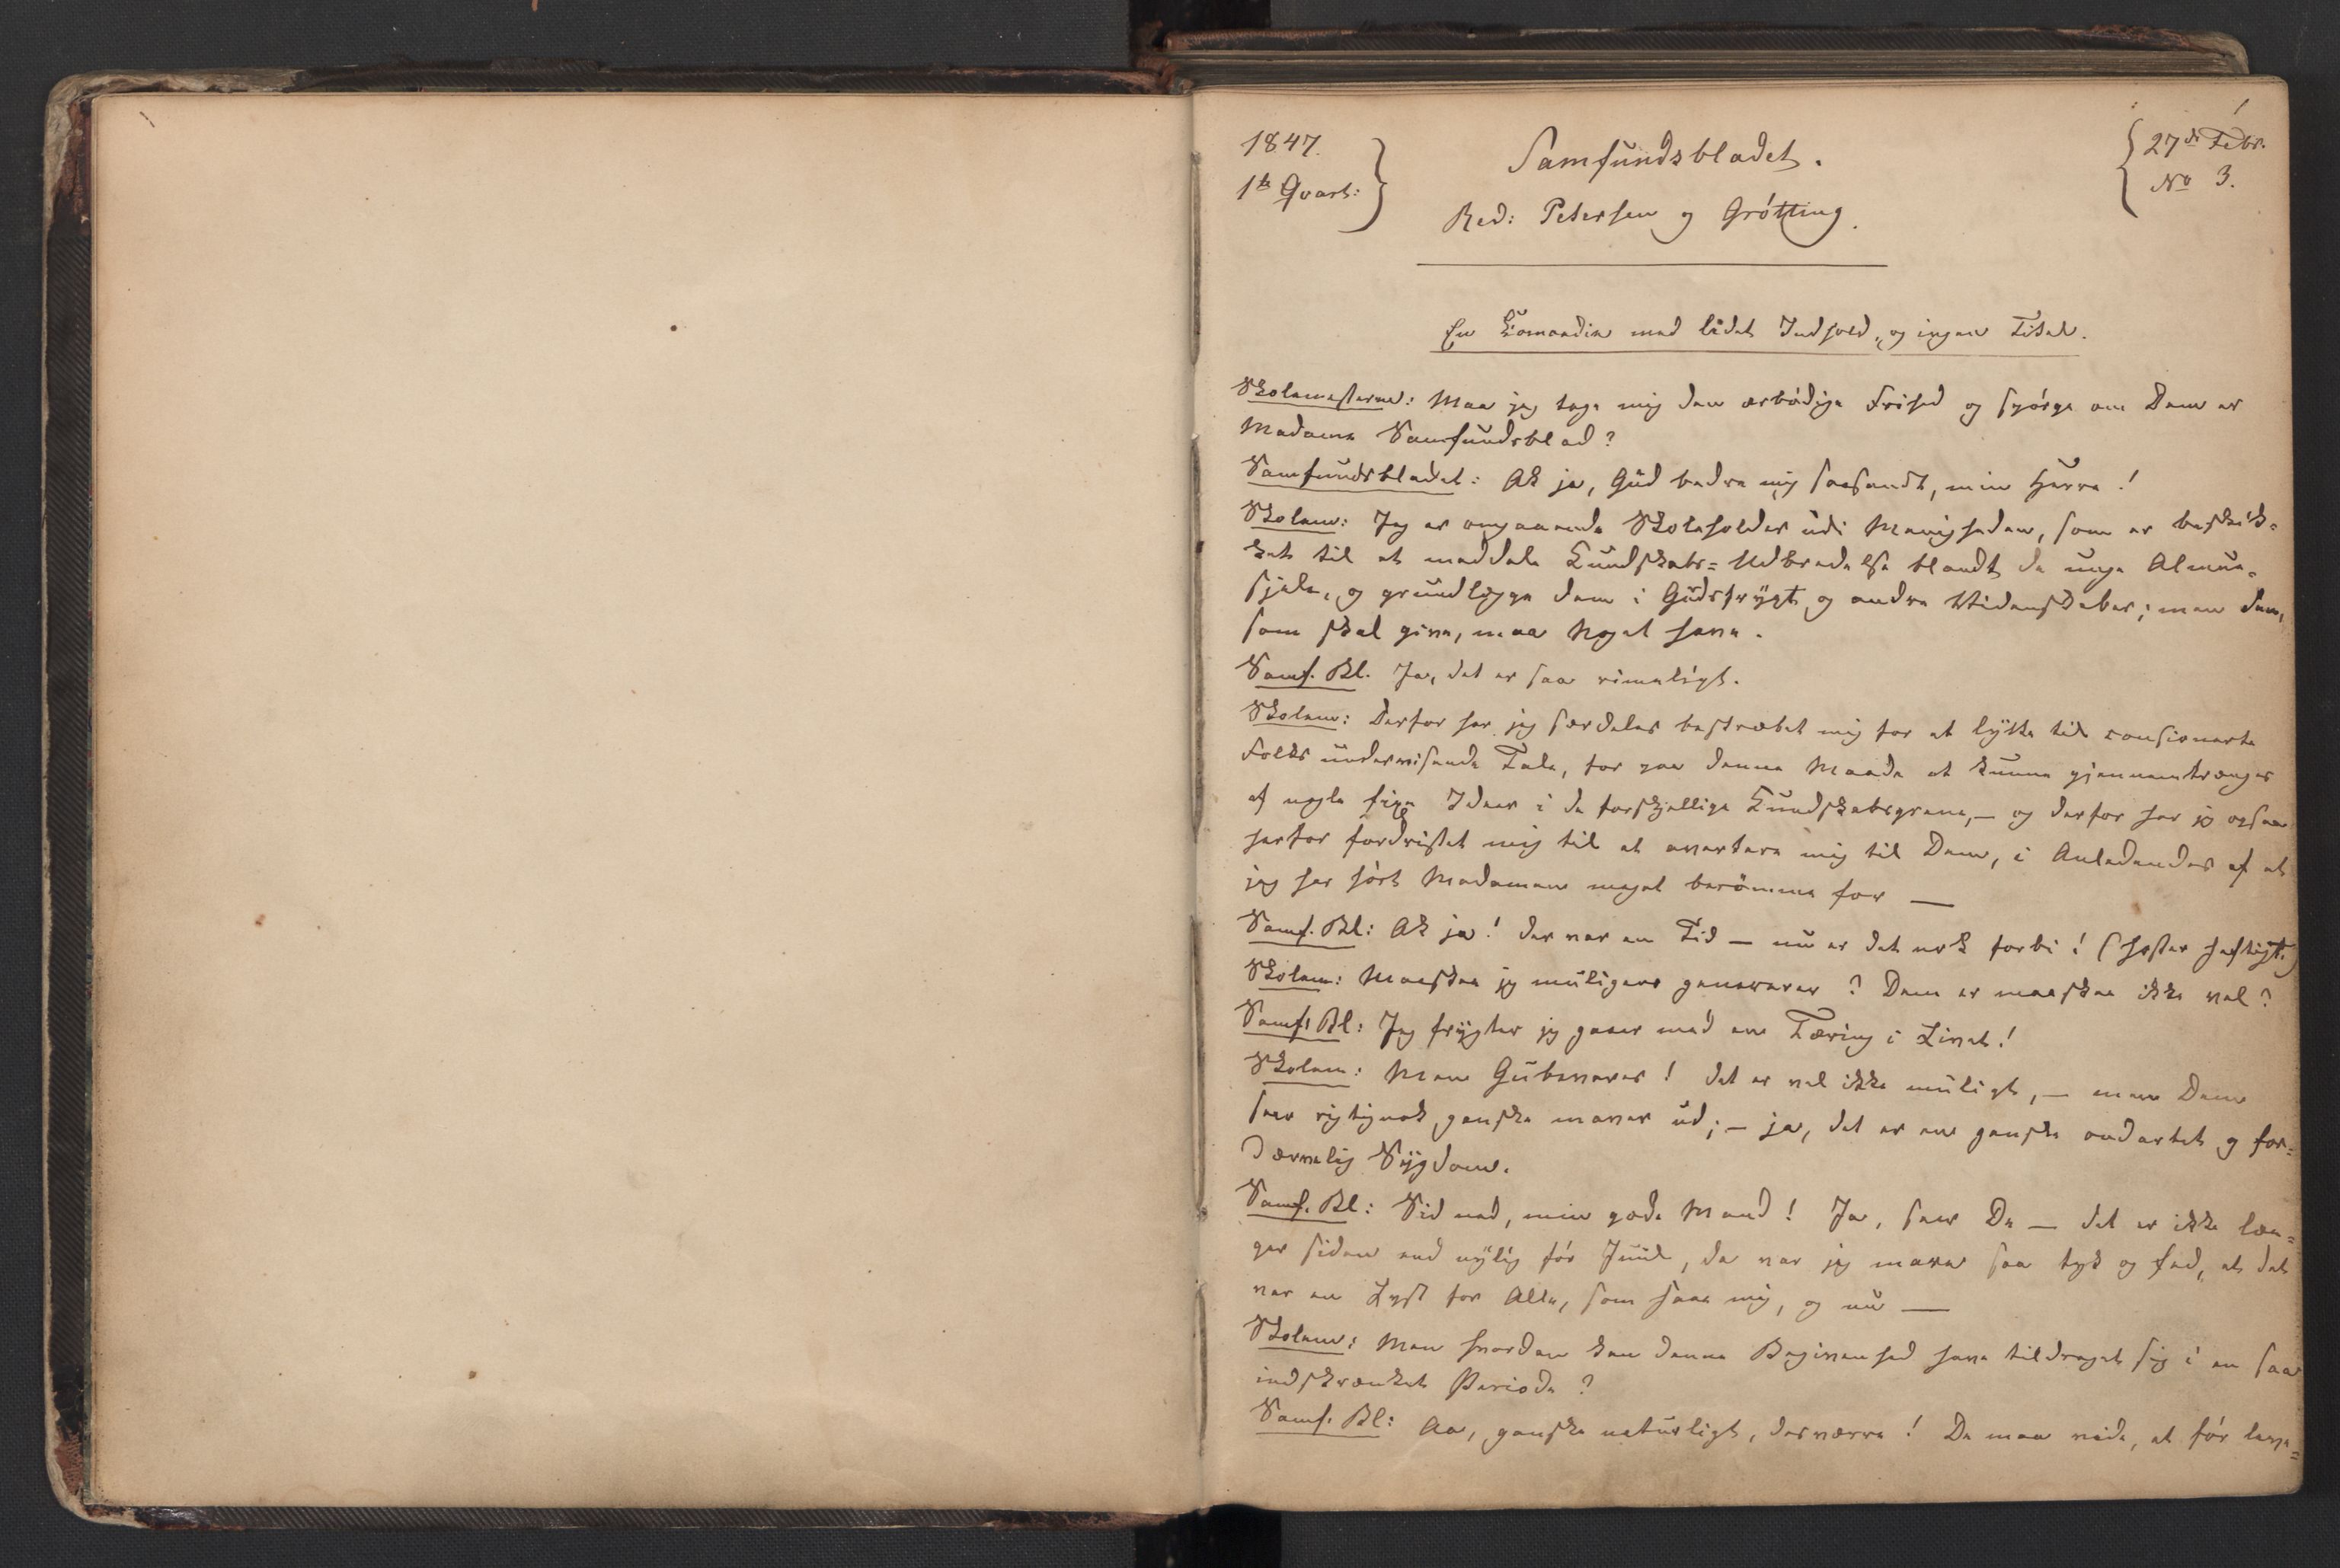 1847.
1ste Qvart:
Samfundsbladet.
Red: Petersen og Grötting.
27de Febr.
No 3.
1
En Komoedia med lidet Indhold, og ingen Titel.
Skolemesteren: Maa jeg tage mig den ærbödige Frihed og spörge om Dem er
Madame Samfundsblad?
Samfundsbladet: Ak ja, Gud bedre mig saasandt, min Herre!
Skolem: Jeg er omgaaende Skoleholder udi Menigheden, som er beskik-
ket til at meddele Kundskabs-Udbredelse blandt de unge Almue-
sjele, og grundlægge dem i Gudsfrygt og andre Widenskaber; men den,
som skal give, maa Noget have.
Samf. Bl. Ja, det er saa rimeligt.
Skolem: Derfor har jeg særdeles bestræbet mig for at lytte til consionerte
Folks underwisende Tale, for paa denne Maade at kunne gjennemtrænges
af nogle fixe Ideer i de forskjellige Kundskabsgrene, – og derfor har jeg ogsaa
herfor fordristet mig til at avertere mig til Dem, i Anledendes af at
jeg har hört Madamen meget berömme for —
Samf. Bl: Ak ja! der var en Tid – nu er det nok forbi! (hoster heftigt.)
Skolem: Maaskee jeg muligens generer? Dem er maaskee ikke vel?
Samf. Bl: Jeg frygter jeg gaaer med en Tæring i Livet!
Skolem: Men Gubevares! det er vel ikke muligt, – men Dem
seer rigtignok ganske maver ud; – ja, det er en ganske ondartet og for-
dærvelig Sygdom.
Samf. Bl: Sid ned, min gode Mand! Ja, seer De – det er ikke læn-
ger siden end nylig för Juul, da var jeg mare saa tyk og fed, at det
var en Lyst for Alle, som saae mig, og nu —
Skolem: Men hvordan kan denne Begivenhed have tildraget sig i en saa
indskrænket Periode?
Samf. Bl: Aa, ganske naturligt, desværre! De maa vide, at för leve-